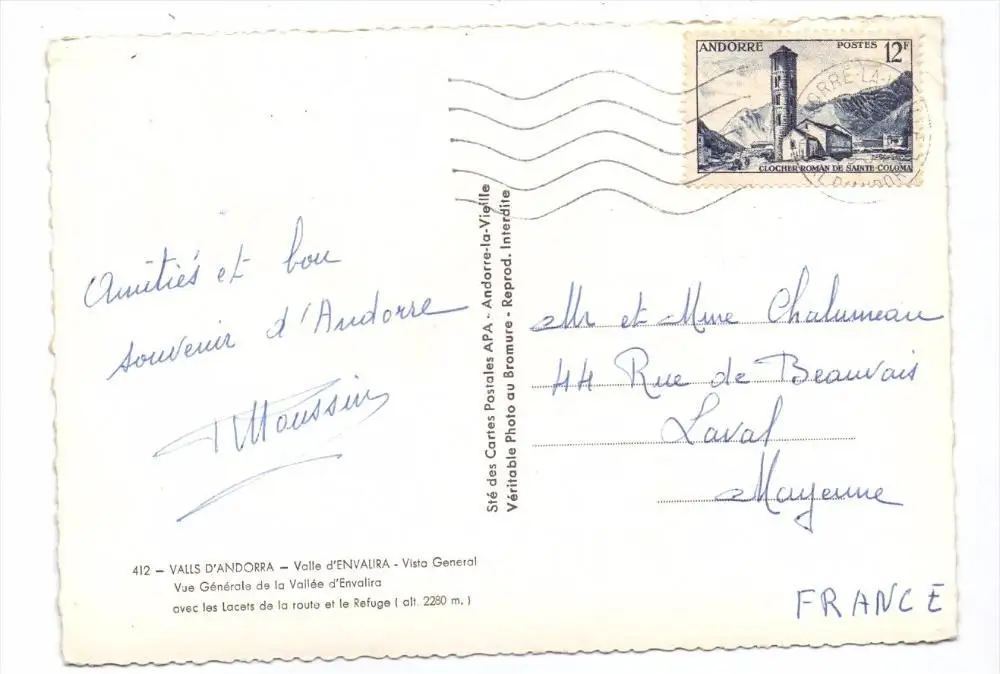 ANDORRE POSTES 12F
CLOCHER ROMAN DE SAINTE-COLOMA
Amitiés et bon
souvenir d'Andorre
Moussin
Sté des Cartes Postales APA - Andorre-la-Vieille
Véritable Photo au Bromure - Reprod. Interdite
Mr et Mme Chalumeau
44 Rue de Beauvais
Laval
Mayenne
FRANCE
412 — VALLS D'ANDORRA — Valle d'ENVALIRA - Vista General
Vue Générale de la Vallée d'Envalira
avec les Lacets de la route et le Refuge ( alt. 2280 m. )